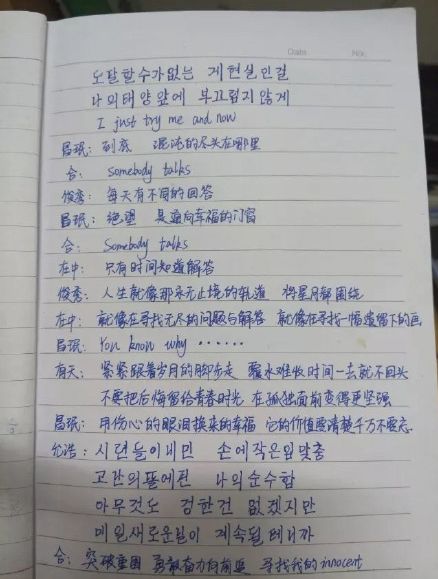 Date No.
도달할수가없는 게현실인걸
나의태양앞에 부끄럽지않게
I just try me and now
昌珉：到底 混沌的尽头在哪里
合： Somebody talks
俊秀：每天有不同的回答
昌珉：绝望 是通向幸福的门窗
合： Somebody talks
在中： 只有时间知道解答
俊秀：人生就像那永无止境的轨道 将星月都围绕
在中：就像在寻找无尽的问题与解答 就像在寻找一幅遗留下的画
昌珉：You know why ······
有天：紧紧跟着岁月的脚步走 覆水难收时间一去就不回头
不要把后悔留给青春时光 在孤独面前变得更坚强
昌珉：用伤心的眼泪换来的幸福 它的价值要清楚千万不要忘
允浩：시련들이내민 손에작은입맞춤
고란의품에핀 나의순수함
아무것도 정한건 없겠지만
매일새로운일이 계속될테니까
合：突破重围 勇敢奋力向前 寻找我的innocent